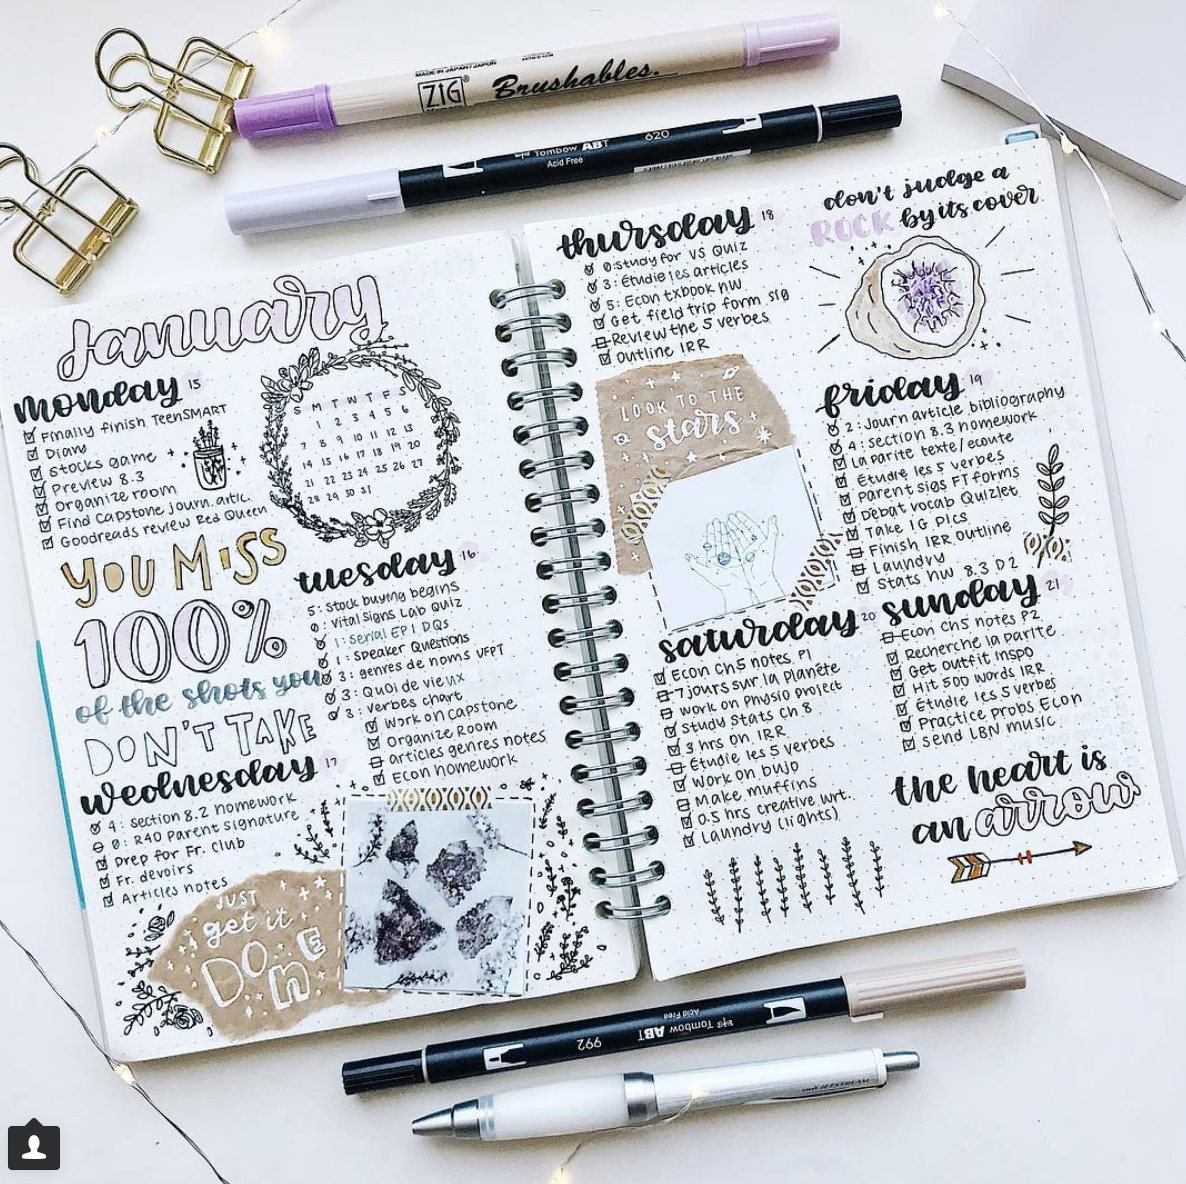 ZIG
Brushables.
MADE IN JAPAN/JAPON
Tombow ABT
620
Acid Free
January
monday 15
Finally finish TeenSMART
Diam
Stocks game
Preview 8.3
Organize room
Find Capstone journ. artic.
Goodreads review Red Queen
S M T W T F S
1 2 3 4 5 6
7 8 9 10 11 12 13
14 15 16 17 18 19 20
21 22 23 24 25 26 27
28 29 30 31
YOU MISS
100%
of the shots you
DON'T TAKE
tuesday 16
5: Stock buying begins
0: Vital Signs Lab Quiz
1: Serial EP 1 DQs
1: Speaker Questions
3: genres de noms VFPT
3: Quoi de vieux
3: verbes chart
Work on Capstone
Organize Room
articles genres notes
Econ homework
wednesday 17
4: Section 8.2 homework
0: R40 Parent Signature
Prep for Fr. Club
Fr. devoirs
Articles notes
JUST
get it
DONE
thursday 18
0: Study for VS Quiz
3: Étudie les articles
5: Econ txbook hw
Get field trip form sig
Review the 5 verbes
Outline IRR
don't judge a
ROCK by its cover
LOOK TO THE
stars
friday 19
2: Journ article bibliography
4: section 8.3 homework
La parité texte/ecoute
Étudie les 5 verbes
Parent sigs FT forms
Debat vocab Quizlet
Take IG pics
Finish IRR outline
Laundry
Stats hw 8.3 D2
saturday 20
Econ Ch5 notes P1
7 jours sur la planète
Work on Physio project
Study Stats Ch 8
3 hrs on IRR
Étudie les 5 verbes
Work on bujo
Make muffins
0.5 hrs creative wrt.
Laundry (lights)
sunday 21
Econ Ch5 notes P2
Recherche la parite
Get outfit inspo
Hit 500 words IRR
Étudie les 5 verbes
Practice Probs Econ
Send LBN music
the heart is
an arrow
992
Tombow ABT
Acid Free
JETSTREAM